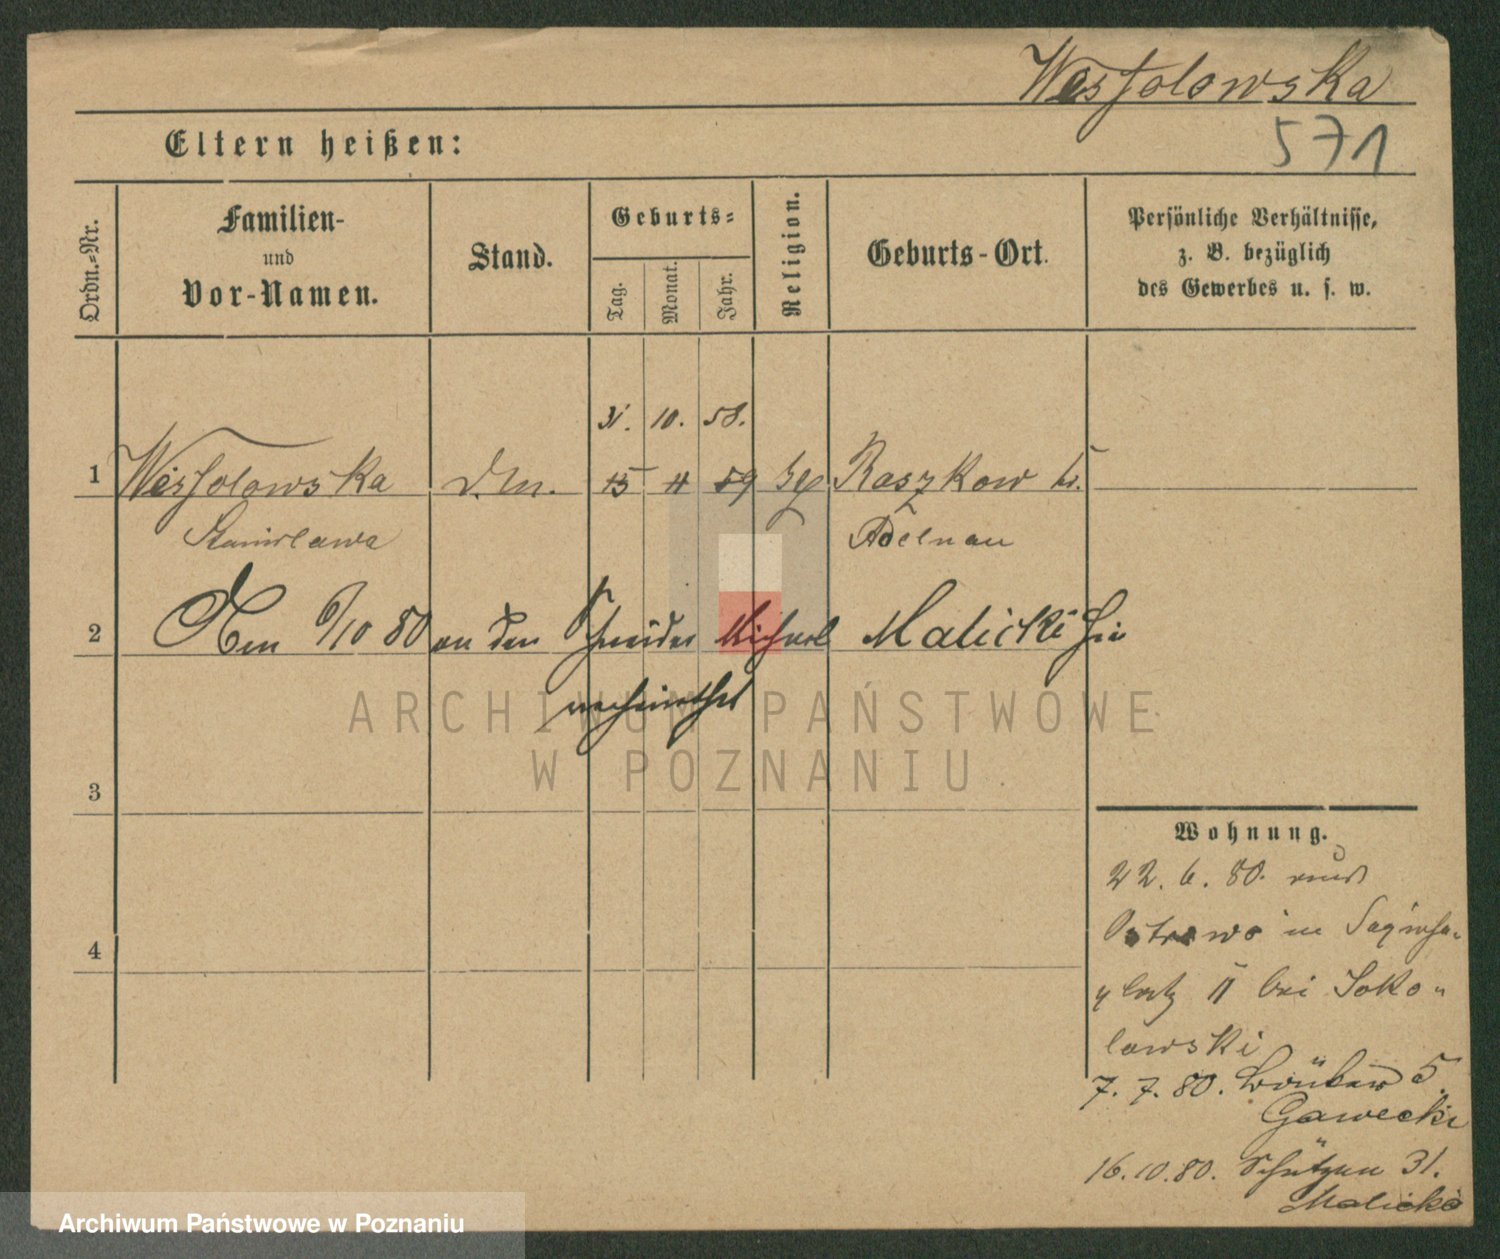 Wesfolowska
571
Eltern heißen:
Ordn.-Nr.
Familien-
und
Vor-Namen.
Stand.
Geburts-
Tag.
Monat.
Jahr.
Religion.
Geburts-Ort.
Persönliche Verhältnisse,
z. B. bezüglich
des Gewerbes u. s. w.
31. 10. 58.
1 Wesfolowska d.M. 15 11 59 Raszkow
Stanislawa Adelnau
2 Den 6/10 80 an den Schneider Michael Malicki hie
verheirathet
ARCHIWUM PAŃSTWOWE
W POZNANIU
3
4
Wohnung.
22. 6. 80.
Ostrowo in Sapieha-
platz 11 bei Soko-
lowski
7. 7. 80. 5.
Gawecki
16. 10. 80. Schützen 31.
Malicki
Archiwum Państwowe w Poznaniu